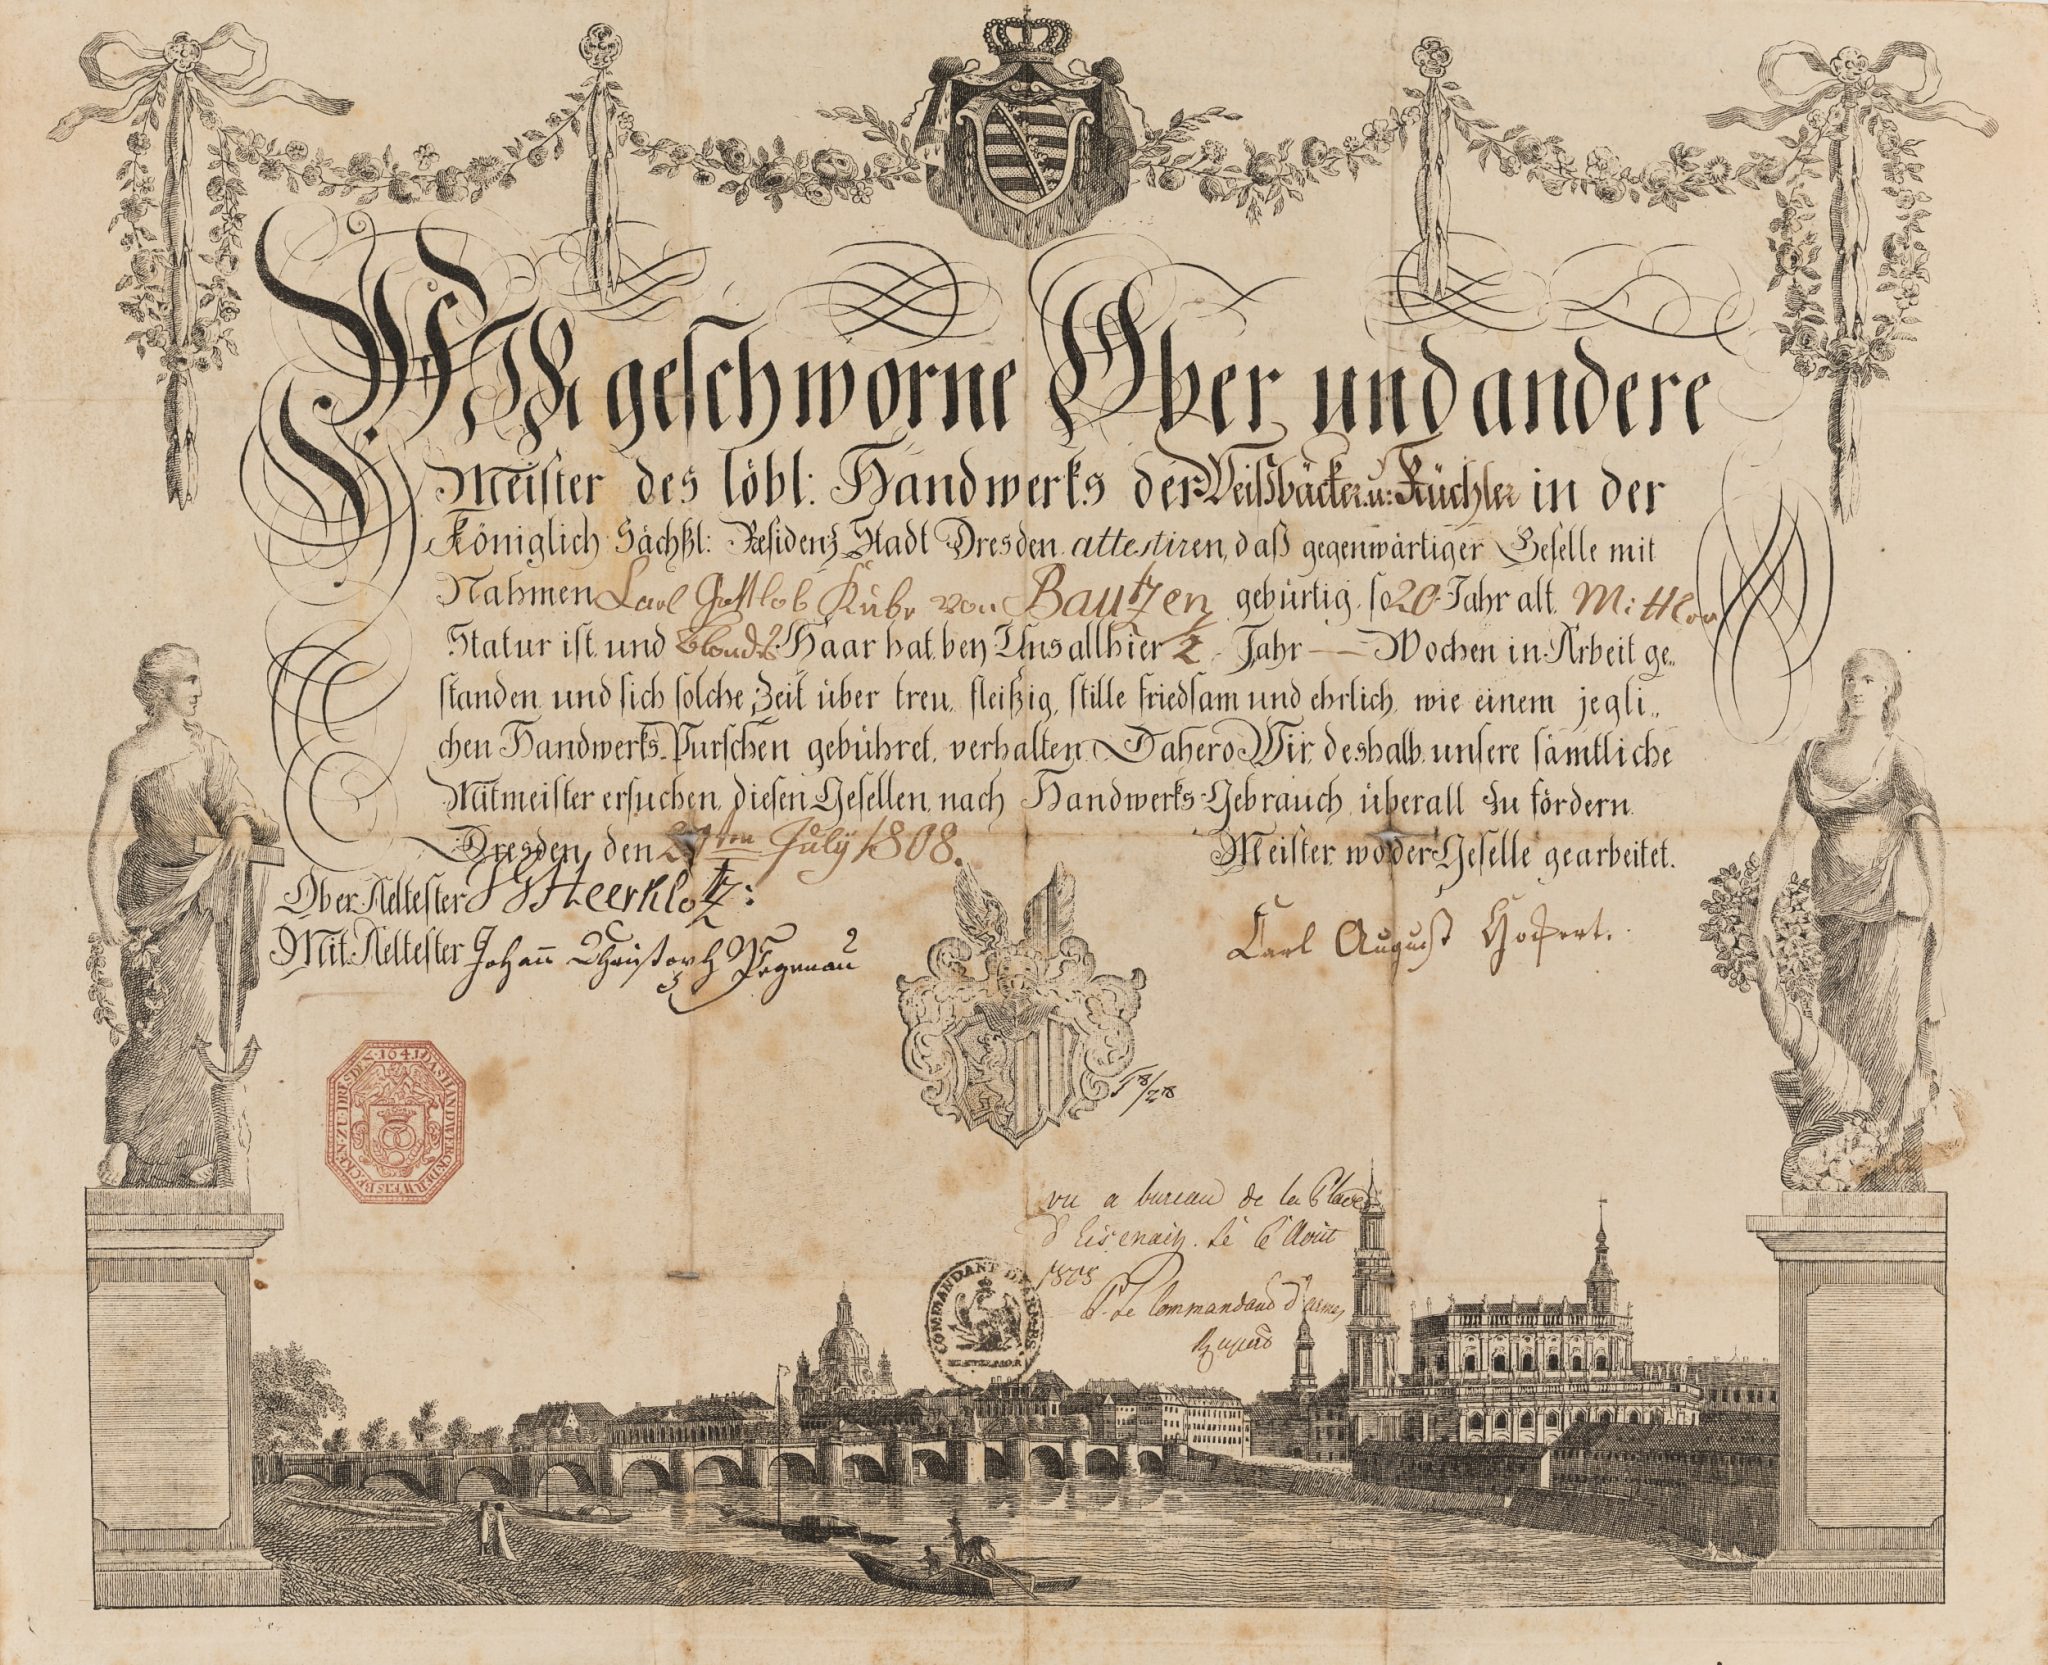 WIR geschworne Ober und andere
Meister des löbl: Handwerks der Weißbäcker u: Küchler in der
Königlich Sächßl: Residenz Stadt Dresden attestiren, daß gegenwärtiger Geselle mit
Nahmen Carl Gottlob Kubr von Bautzen gebürtig, so 20 Jahr alt, Mittler
Statur ist, und blonde Haar hat, bey Uns allhier 2 Jahr — Wochen in Arbeit ge„
standen, und sich solche Zeit über treu, fleißig, stille friedsam und ehrlich, wie einem jegli„
chen Handwerks-Purschen gebühret, verhalten. Dahero Wir, deshalb, unsere sämtliche
Mitmeister ersuchen, diesen Gesellen, nach Handwerks-Gebrauch überall zu fördern.
Dresden, den 29ten July 1808.
Meister, wo der Geselle gearbeitet.
Ober Aeltester Heerklotz:
Mit Aeltester Johann Christoph
Carl August
1641 DAS HANDWERCK DER WEISBECKEN ZU DRESDEN
vu a bureau de la Place
d'Eisenach. le 6 Août
1808
P. le Commandant d'armes
COMMANDANT D'ARMES